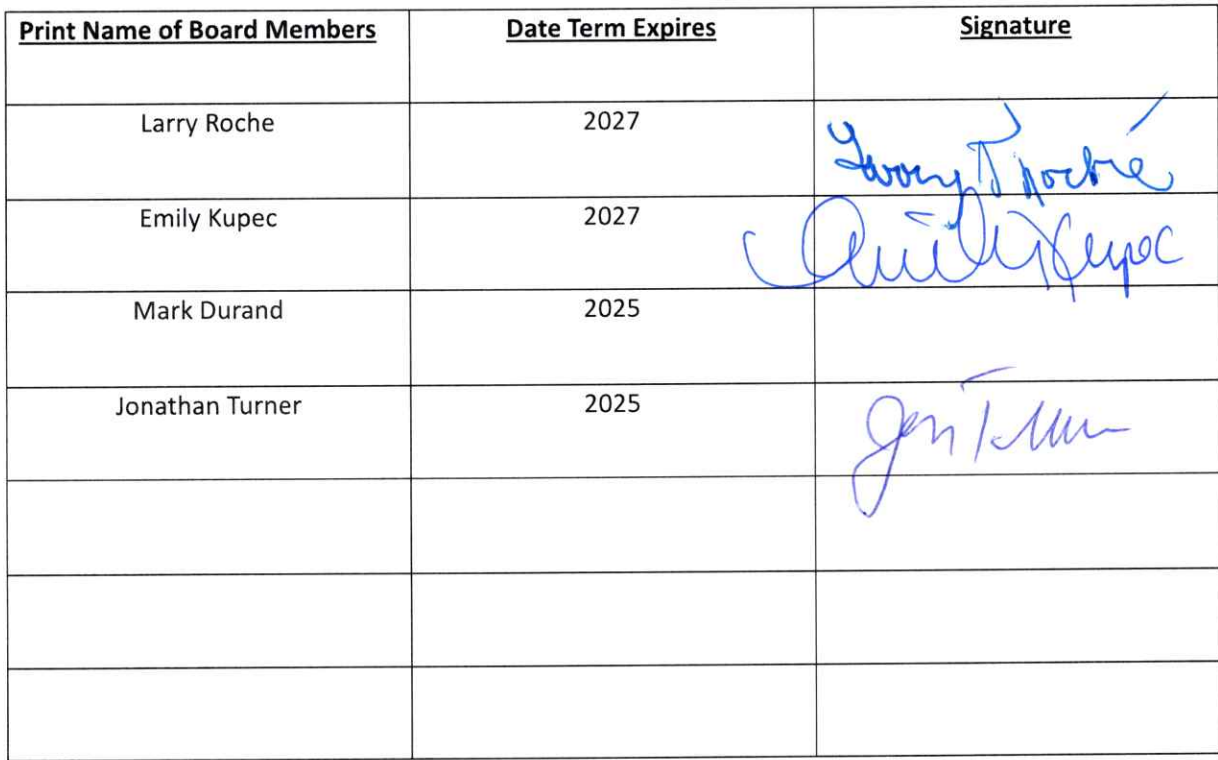 Print Name of Board Members Date Term Expires Signature
Larry Roche 2027
Emily Kupec 2027 Emily Kupec
Mark Durand 2025
Jonathan Turner 2025